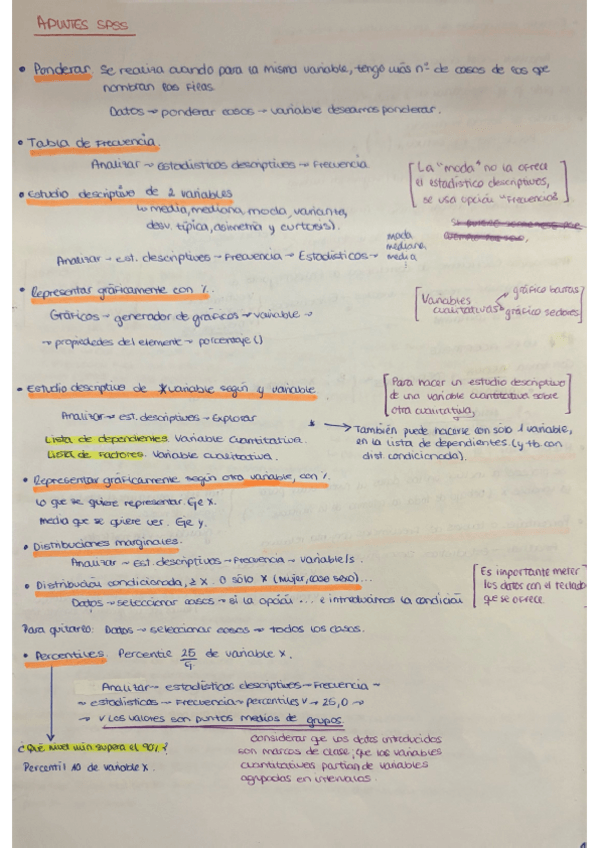 APUNTES SPSS
• Ponderar. Se realiza cuando para la misma variable, tengo más nº de casos de los que
nombran las filas.
Datos → ponderar casos → variable deseamos ponderar.
• Tabla de Frecuencia.
Analizar → Estadísticos descriptivos → Frecuencia
[La "moda" no la ofrece
el estadístico descriptivos,
se usa opción "Frecuencias"]
• Estudio descriptivo de 2 variables
↳ media, mediana, moda, varianza,
desv. típica, asimetría y curtosis).
Analizar → est. descriptivos → Frecuencia → Estadísticos →
moda
mediana
media
• Representar gráficamente con %.
[Variables
cualitativas
gráfico barras?
gráfico sectores]
Gráficos → generador de gráficos → variable →
→ propiedades del elemento → porcentaje ()
• Estudio descriptivo de x variable según y variable
[Para hacer un estudio descriptivo
de una variable cuantitativa sobre
otra cualitativa,]
Analizar → est. descriptivos → Explorar
* → También puede hacerse con sólo 1 variable,
en la lista de dependientes. (y tb con
dist. condicionada).
Lista de dependientes. Variable Cuantitativa.
Lista de Factores. Variable cualitativa.
• Representar gráficamente según otra variable, con %.
lo que se quiere representar. Eje x.
media que se quiere ver. Eje y.
• Distribuciones marginales.
Analizar → Est. descriptivos → Frecuencia → variable/s.
• Distribución condicionada, 2 x. o sólo x (mujer, case sexo)...
[Es importante meter
los datos con el teclado
que se ofrece.
Datos → seleccionar casos → si la opción ... e introducimos la condición
Para quitarlo: Datos → seleccionar casos → todos los casos.
• Percentiles. Percentil 25 de variable x.
Analizar → estadísticos descriptivos → Frecuencia →
→ estadísticos → Frecuencia → percentiles v → 25,0 →
→ v Los valores son puntos medios de grupos.
Considerar que los datos introducidos
son marcas de clase; que las variables
cuantitativas partían de variables
agrupadas en intervalos.
¿Qué nivel min supera el 90%?
Percentil 10 de variable x.